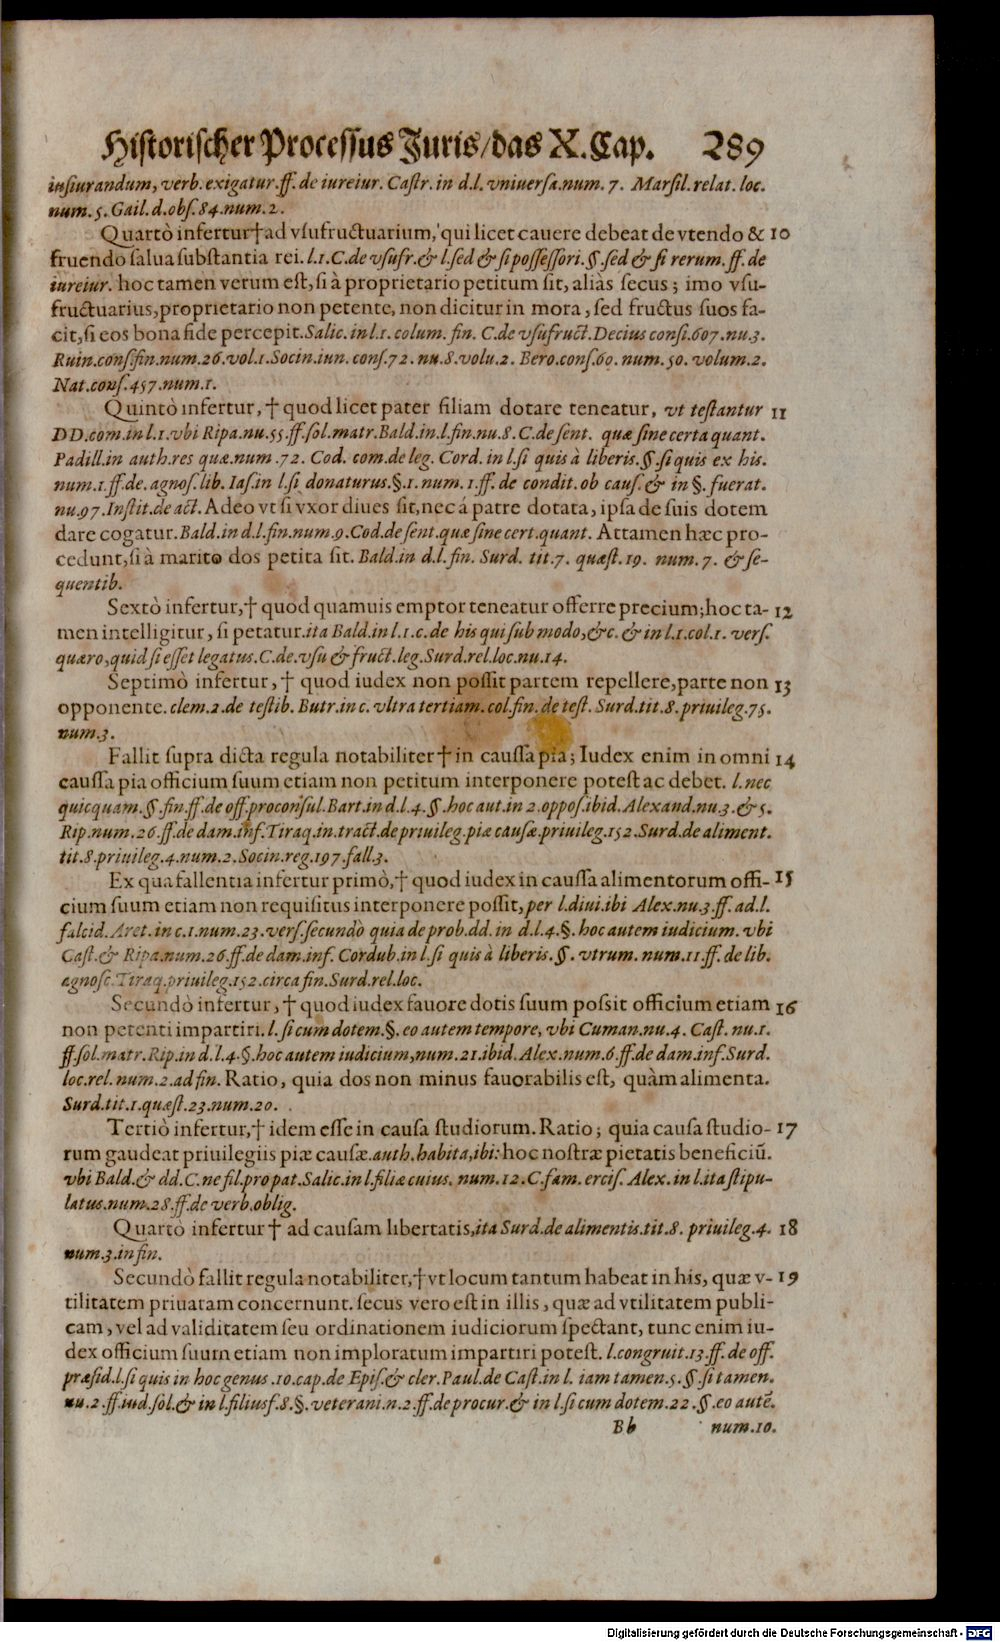 Historischer Processus Juris/das X. Cap. 289
insiurandum, verb. exigatur. ff. de iureiur. Castr. in d. l. vniuersa. num. 7. Marsil. relat. loc.
num. 5. Gail. d. obs. 84. num. 2.
Quartò infertur † ad vsufructuarium, qui licet cauere debeat de vtendo & 10
fruendo salua substantia rei. l. 1. C. de vsufr. & l. sed & si possessori. §. sed & si rerum. ff. de
iureiur. hoc tamen verum est, si à proprietario petitum sit, aliàs secus; imo vsu-
fructuarius, proprietario non petente, non dicitur in mora, sed fructus suos fa-
cit, si eos bona fide percepit. Salic. in l. 1. colum. fin. C. de vsufruct. Decius consi. 607. nu. 3.
Ruin. cons. fin. num. 26. vol. 1. Socin. iun. cons. 72. nu. 8. volu. 2. Bero. cons. 60. num. 50. volum. 2.
Nat. cons. 457. num. 1.
Quintò infertur, † quod licet pater filiam dotare teneatur, vt testantur 11
DD. com. in l. 1. vbi Ripa. nu. 55. ff. sol. matr. Bald. in. l. fin. nu. 8. C. de sent. quæ sine certa quant.
Padill. in auth. res quæ. num. 72. Cod. com. de leg. Cord. in l. si quis à liberis. §. si quis ex his.
num. 1. ff. de. agnos. lib. Ias. in l. si donaturus. §. 1. num. 1. ff. de condit. ob caus. & in §. fuerat.
nu. 97. Instit. de act. Adeo vt si vxor diues sit, nec á patre dotata, ipsa de suis dotem
dare cogatur. Bald. in d. l. fin. num. 9. Cod. de sent. quæ sine cert. quant. Attamen hæc pro-
cedunt, si à marito dos petita sit. Bald. in d. l. fin. Surd. tit. 7. quæst. 19. num. 7. & se-
quentib.
Sextò infertur, † quod quamuis emptor teneatur offerre precium; hoc ta- 12
men intelligitur, si petatur. ita Bald. in l. 1. c. de his qui sub modo, &c. & in l. 1. col. 1. vers.
quæro, quid si esset legatus. C. de. vsu & fruct. leg. Surd. rel. loc. nu. 14.
Septimò infertur, † quod iudex non possit partem repellere, parte non 13
opponente. clem. 2. de testib. Butr. in c. vltra tertiam. col. fin. de test. Surd. tit. 8. priuileg. 75.
num. 3.
Fallit supra dicta regula notabiliter † in caussa pia; Iudex enim in omni 14
caussa pia officium suum etiam non petitum interponere potest ac debet. l. nec
quicquam. §. fin. ff. de off. proconsul. Bart. in d. l. 4. §. hoc aut. in 2. oppos. ibid. Alexand. nu. 3. & 5.
Rip. num. 26. ff. de dam. inf. Tiraq. in. tract. de priuileg. piæ causæ. priuileg. 152. Surd. de aliment.
tit. 8. priuileg. 4. num. 2. Socin. reg. 197. fall. 3.
Ex qua fallentia infertur primò, † quod iudex in caussa alimentorum offi- 15
cium suum etiam non requisitus interponere possit, per l. diui. ibi Alex. nu. 3. ff. ad. l.
falcid. Aret. in c. 1. num. 23. vers. secundò quia de prob. dd. in d. l. 4. §. hoc autem iudicium. vbi
Cast. & Ripa. num. 26. ff. de dam. inf. Cordub. in l. si quis à liberis. §. vtrum. num. 11. ff. de lib.
agnosc. Tiraq. priuileg. 152. circa fin. Surd. rel. loc.
Secundò infertur, † quod iudex fauore dotis suum possit officium etiam 16
non petenti impartiri. l. si cum dotem. §. eo autem tempore, vbi Cuman. nu. 4. Cast. nu. 1.
ff. sol. matr. Rip. in d. l. 4. §. hoc autem iudicium, num. 21. ibid. Alex. num. 6. ff. de dam. inf. Surd.
loc. rel. num. 2. ad fin. Ratio, quia dos non minus fauorabilis est, quàm alimenta.
Surd. tit. 1. quæst. 23. num. 20.
Tertiò infertur, † idem esse in causa studiorum. Ratio; quia causa studio- 17
rum gaudeat priuilegiis piæ causæ. auth. habita, ibi: hoc nostræ pietatis beneficiũ.
vbi Bald. & dd. C. ne fil. pro pat. Salic. in l. filiæ cuius. num. 12. C. fam. ercis. Alex. in l. ita stipu-
latus. num. 28. ff. de verb. oblig.
Quartò infertur † ad causam libertatis, ita Surd. de alimentis. tit. 8. priuileg. 4. 18
num. 3. in fin.
Secundò fallit regula notabiliter, † vt locum tantum habeat in his, quæ v- 19
tilitatem priuatam concernunt. secus vero est in illis, quæ ad vtilitatem publi-
cam, vel ad validitatem seu ordinationem iudiciorum spectant, tunc enim iu-
dex officium suum etiam non imploratum impartiri potest. l. congruit. 13. ff. de off.
præsid. l. si quis in hoc genus. 10. cap. de Epis. & cler. Paul. de Cast. in l. iam tamen. 5. §. si tamen.
nu. 2. ff. iud. sol. & in l. filiusf. 8. §. veterani. n. 2. ff. de procur. & in l. si cum dotem. 22. §. eo autẽ.
Bb num. 10.
Digitalisierung gefördert durch die Deutsche Forschungsgemeinschaft - DFG